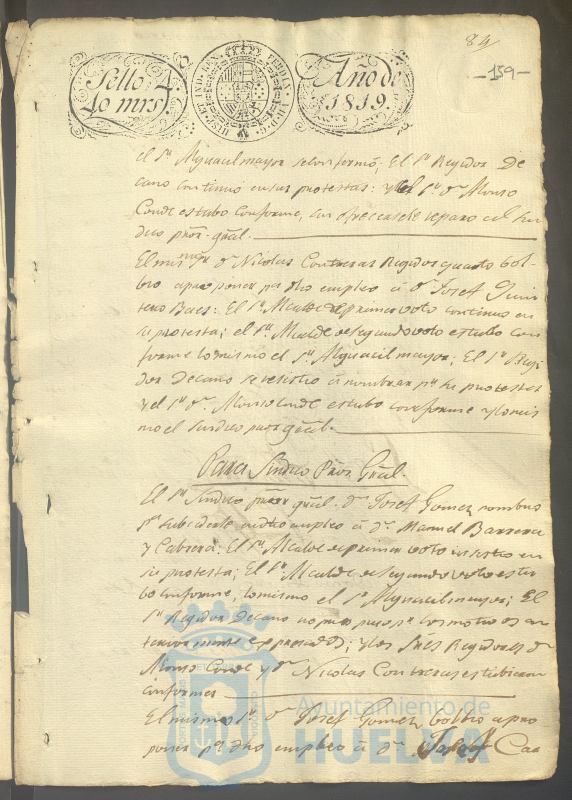 84
-159-
Sello 4
40 mrs
HISP. ET IND. REX FERDIN. VII. D. G.
Año de
1819.
el Sr. Alguacil mayor se conformó; El Sr. Regidor De
cano continuo en sus protestas: y el Sr. Dn. Alonso
Conde estubo conforme, sin ofrecersele reparo al Sin
dico prōr. grāl.
El mismo Sr. Dn. Nicolas Contreras Regidor quarto bol-
bio a proponer pa. dho empleo á Dn. Josef Quin
tero Baes: El Sr. Alcalde de primer voto continuo en
su protesta; el Sr. Alcalde de segundo voto estubo con
forme lo mismo el Sr. Alguacil mayor; El Sr. Regi
dor Decano se resistio á nombrar pr. su protesta
y el Sr. Dn. Alonso Conde estubo conforme y lo mis
mo el Sindico prōr grāl.
Para Sindico Prōr. Grāl.
El Sr. Sindico prōr grāl. Dn. Josef Gomez nombro
pa. subcederle en dho empleo á Dn. Manuel Barrera
y Cabrera: El Sr. Alcalde de primer voto insistio en
su protesta; El Sr. Alcalde de segundo voto estu
bo conforme, lo mismo el Sr. Alguacil mayor; El
Sr. Regidor Decano
teriormente expresados; y los Sres Regidores Dn.
Alonso Conde y Dn. Nicolas Contreras estubieron
conformes
El mismo Sr. Dn. Josef Gomez bolbio a pro
poner pa. dho empleo á Dn. Josef Caa
Ayuntamiento de
HUELVA